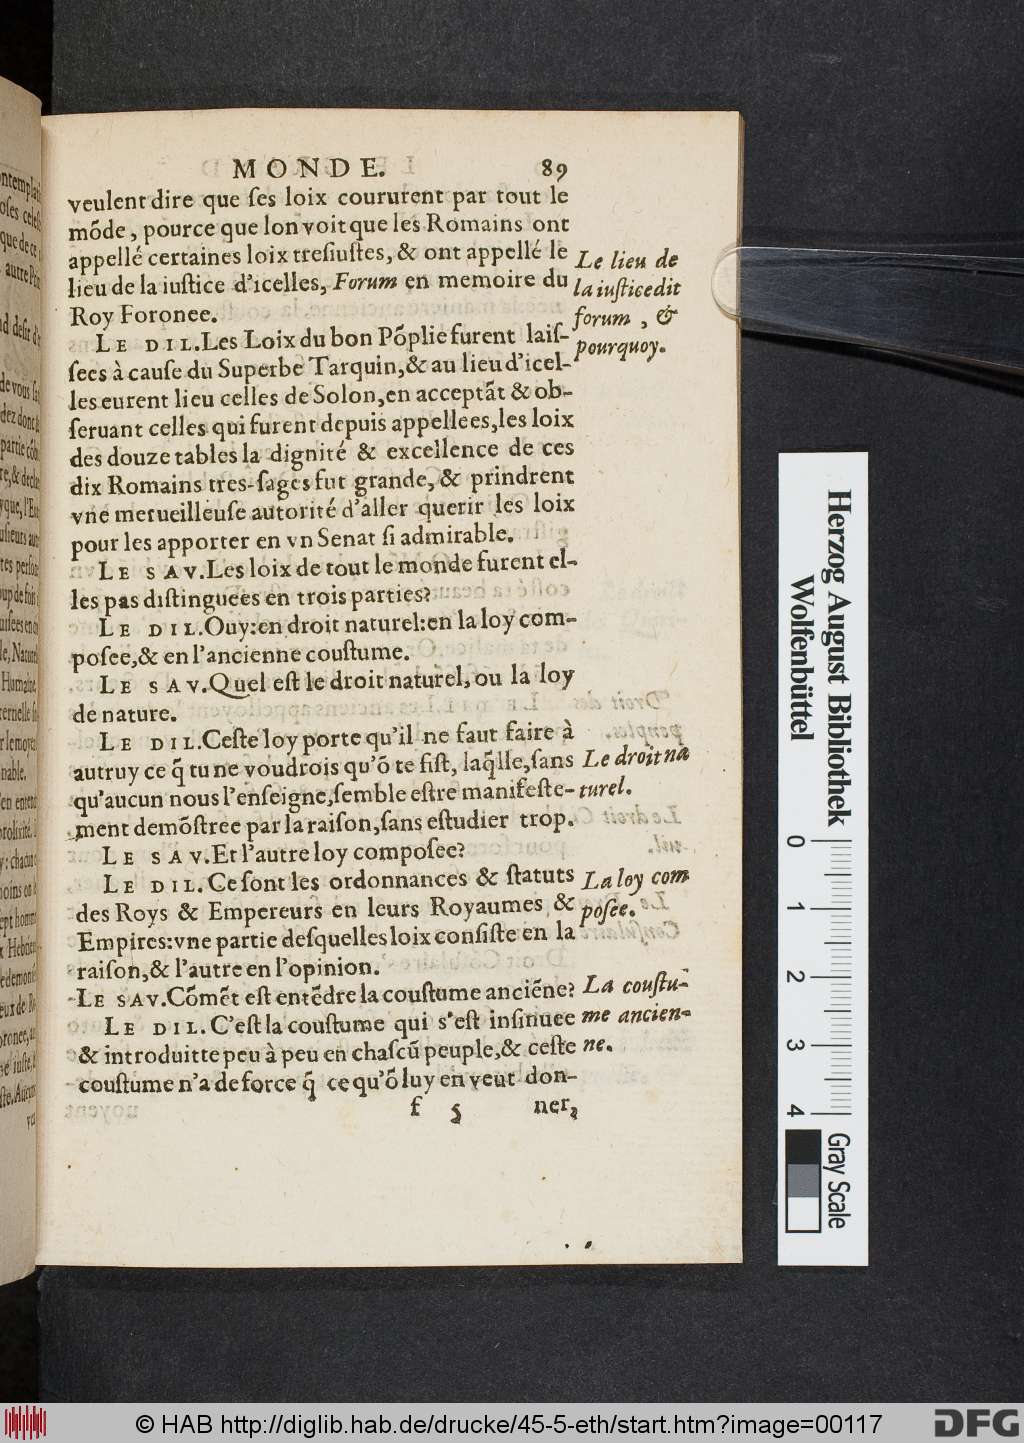 MONDE. 89
veulent dire que ſes loix coururent par tout le
mõde, pource que lon voit que les Romains ont
appellé certaines loix treſiuſtes, & ont appellé le
lieu de la iuſtice d'icelles, Forum en memoire du
Roy Foronee.
Le lieu de
la iuſtice dit
forum, &
pourquoy.
LE DIL. Les Loix du bon Põplie furent laiſ-
ſees à cauſe du Superbe Tarquin, & au lieu d'icel-
les eurent lieu celles de Solon, en acceptãt & ob-
ſeruant celles qui furent depuis appellees, les loix
des douze tables la dignité & excellence de ces
dix Romains tres-ſages fut grande, & prindrent
vne merueilleuſe autorité d'aller querir les loix
pour les apporter en vn Senat ſi admirable.
LE SAV. Les loix de tout le monde furent el-
les pas diſtinguees en trois parties?
LE DIL. Ouy: en droit naturel: en la loy com-
poſee, & en l'ancienne couſtume.
LE SAV. Quel eſt le droit naturel, ou la loy
de nature.
LE DIL. Ceſte loy porte qu'il ne faut faire à
autruy ce q̃ tu ne voudrois qu'õ te fiſt, laq̃lle, ſans
qu'aucun nous l'enſeigne, ſemble eſtre manifeſte-
ment demõſtree par la raiſon, ſans eſtudier trop.
Le droit na
turel.
LE SAV. Et l'autre loy compoſee?
LE DIL. Ce ſont les ordonnances & ſtatuts
des Roys & Empereurs en leurs Royaumes &
Empires: vne partie deſquelles loix conſiſte en la
raiſon, & l'autre en l'opinion.
La loy com
poſee.
LE SAV. Cõmẽt eſt entẽdre la couſtume anciẽne?
LE DIL. C'eſt la couſtume qui s'eſt inſinuee
& introduitte peu à peu en chaſcũ peuple, & ceſte
couſtume n'a de force q̃ ce qu'õ luy en veut don-
La couſtu-
me ancien-
ne.
f 5 ner,
Herzog August Bibliothek
Wolfenbüttel
0 1 2 3 4
Gray Scale
© HAB http://diglib.hab.de/drucke/45-5-eth/start.htm?image=00117
DFG